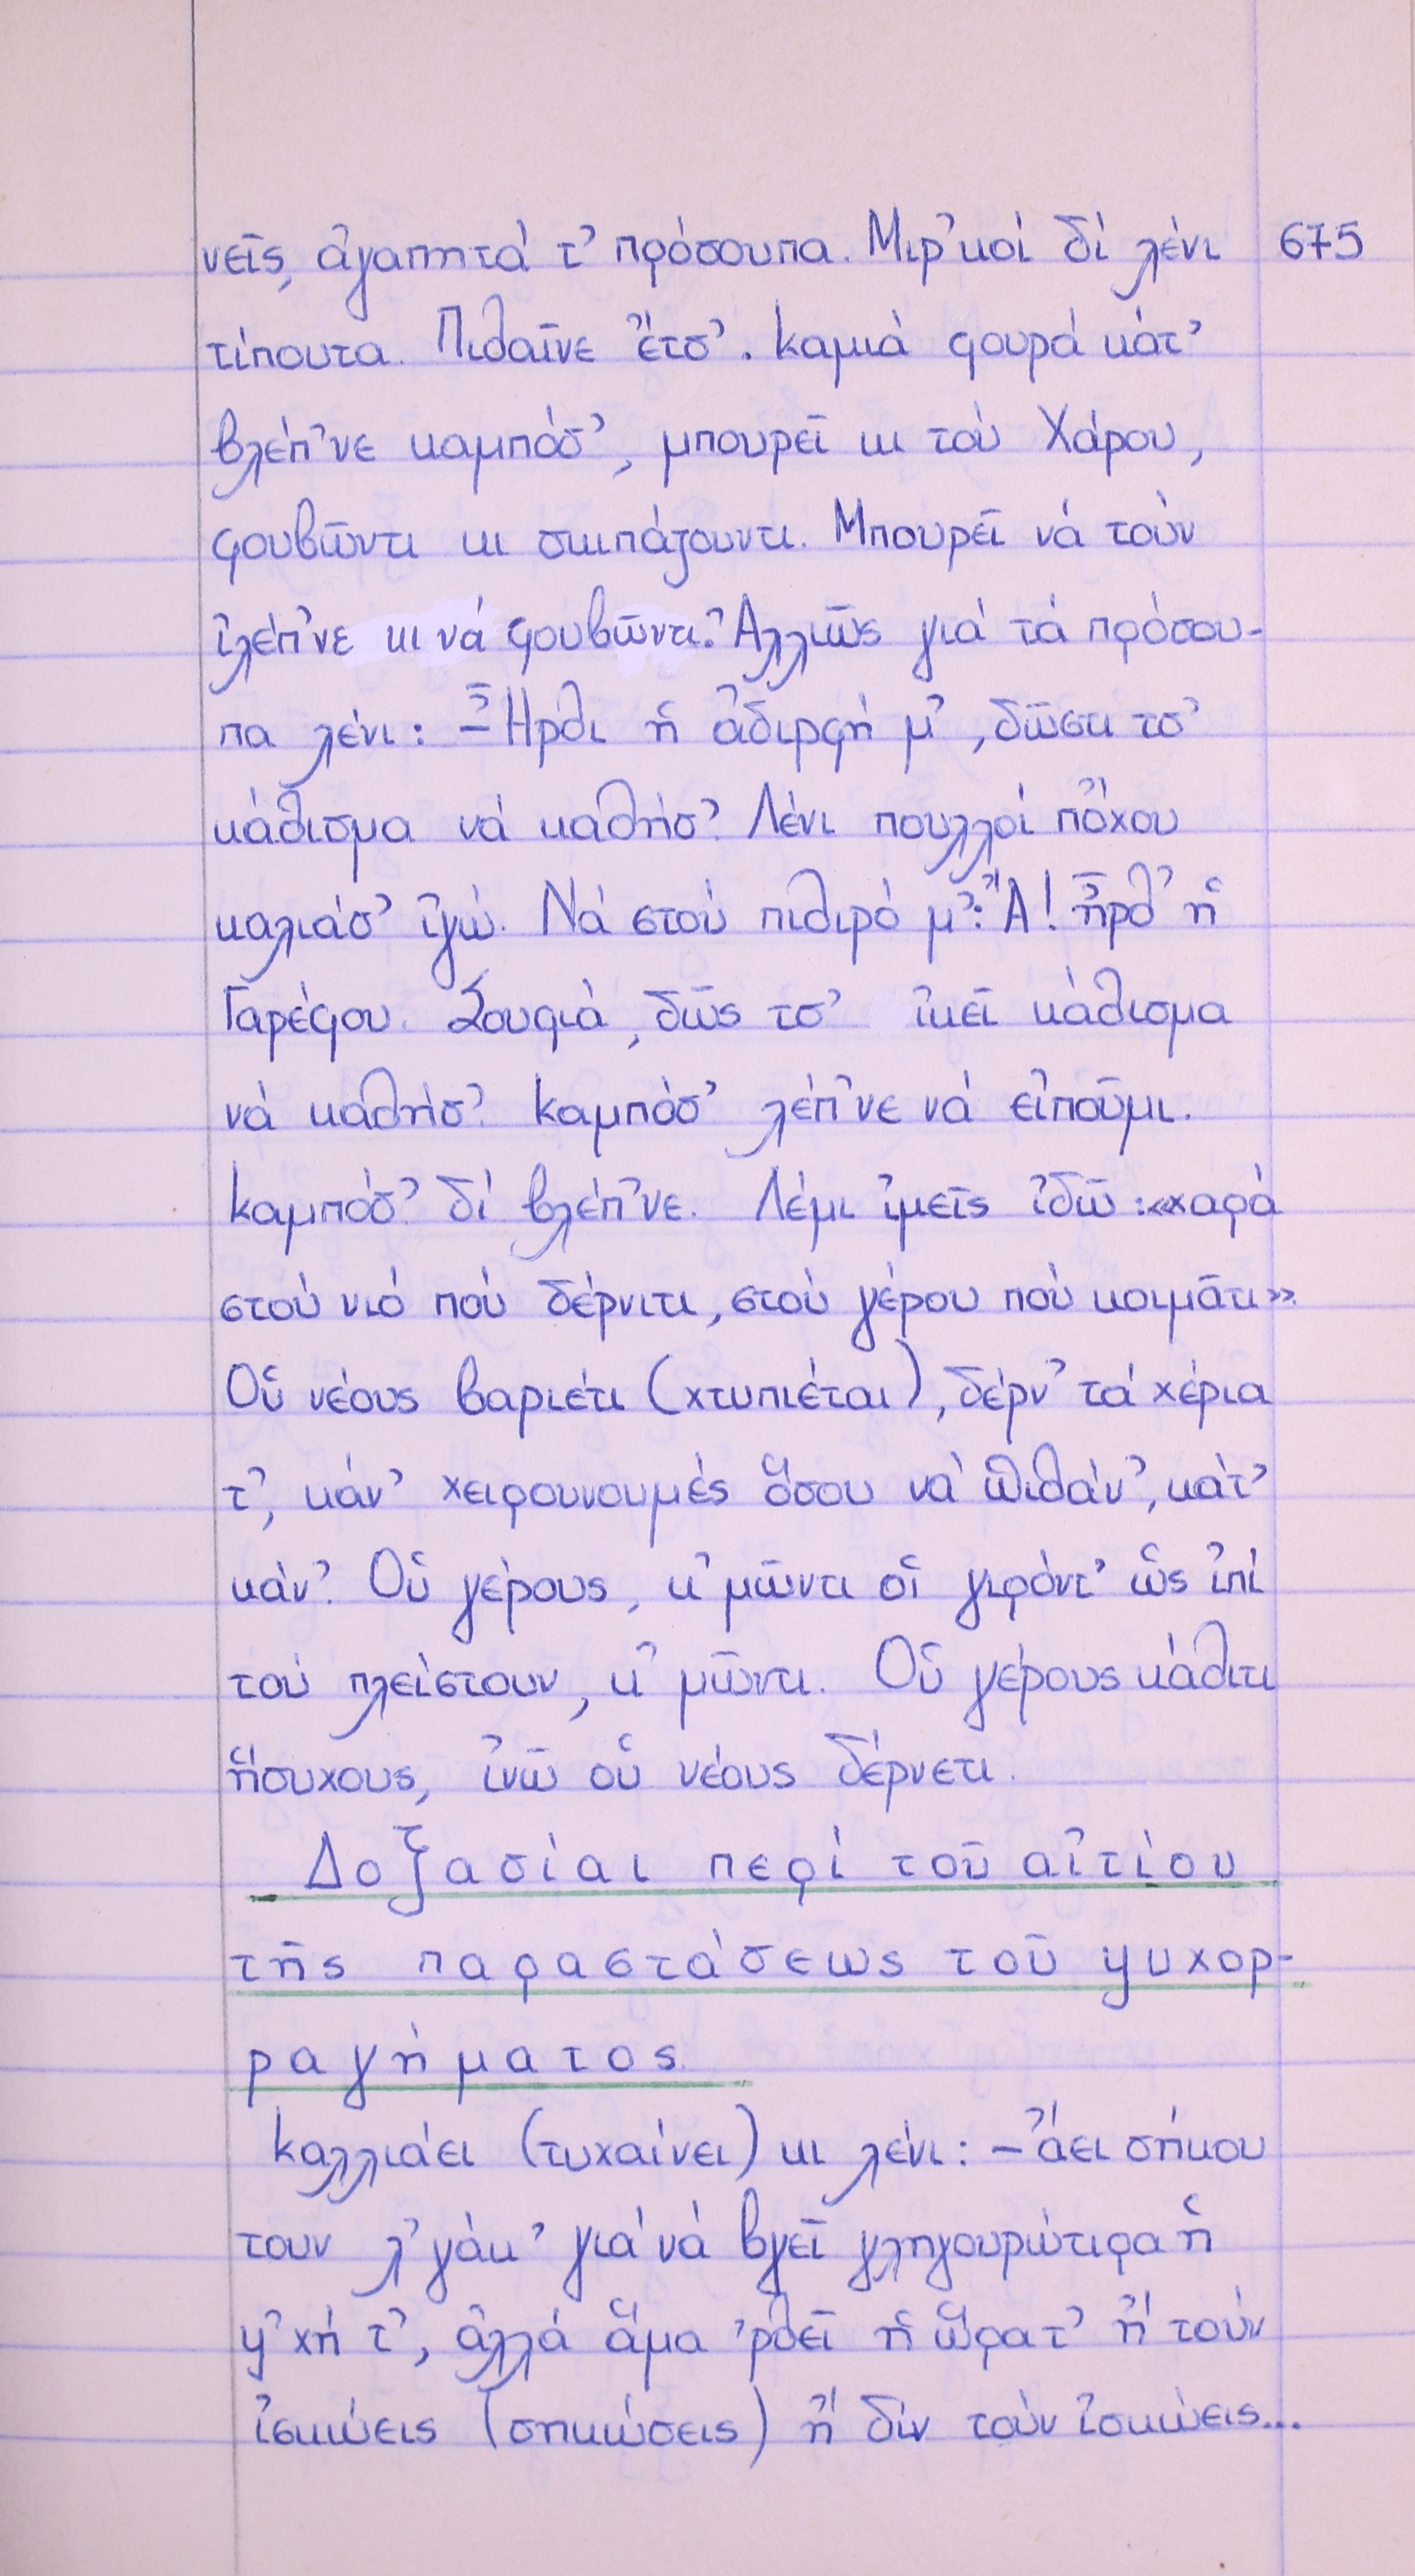 νεῖς, ἀγαπητά τ' πρόσουπα. Μιρ'κοί δί λένι 675
τίπουτα. Πιθαῖνε ἔτσ'. Καμιά φουρά κάτ'
βλέπ'νε καμπόσ', μπουρεῖ κι τού Χάρου,
φουβῶντι κι σκιπάζουντι. Μπουρεῖ νά τούν
ἰλέπ'νε κι νά φουβῶντι. Ἀλλιῶς γιά τά πρόσου-
πα λένι: – Ἦρθι ἡ ἀδιρφή μ', δῶσι τσ'
κάθισμα νά καθήσ'. Λένι πουλλοί πὄχου
καλιάσ' ἰγώ. Νά στού πιθιρό μ': Ἄ! ἦρθ' ἡ
Γαρέφου. Σουφιά, δῶς τσ' ἰκεῖ κάθισμα
νά καθήσ'. Καμπόσ' λέπ'νε νά εἰποῦμι.
Καμπόσ' δί βλέπ'νε. Λέμι ἰμεῖς ἰδῶ: «χαρά
στού νιό πού δέρνιτι, στού γέρου πού κοιμᾶτι».
Οὑ νέους βαριέτι (χτυπιέται), δέρν' τά χέρια
τ', κάν' χειρουνουμές ὅσου νά πιθάν', κάτ'
κάν'. Οὑ γέρους, κ'μῶντι οἱ γιρόντ' ὡς ἰπί
τού πλείστουν, κ'μῶντι. Οὑ γέρους κάθιτι
ἥσυχους, ἰνῶ οὑ νέους δέρνετι.
Δοξασίαι περί τοῦ αἰτίου
τῆς παραστάσεως τοῦ ψυχορ-
ραγήματος
Καλλιάει (τυχαίνει) κι λένι: – ἄει σήκου
τουν λ'γάκ' γιά νά βγεῖ γληγουρώτιρα ἡ
ψ'χή τ', ἀλλά ἅμα 'ρθεῖ ἡ ὥρα τ' ἤ τούν
ἰσκώεις (σηκώσεις) ἤ δίν τούν ἰσκώεις...